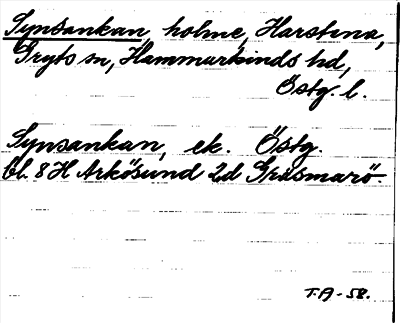 Synsankan, holme, Harstena,
Gryts sn, Hammarkinds hd,
Östg. l.
Synsankan, ek. Östg.
bl. 8 H Arkösund 2d Gräsmarö.
T.A - 58.